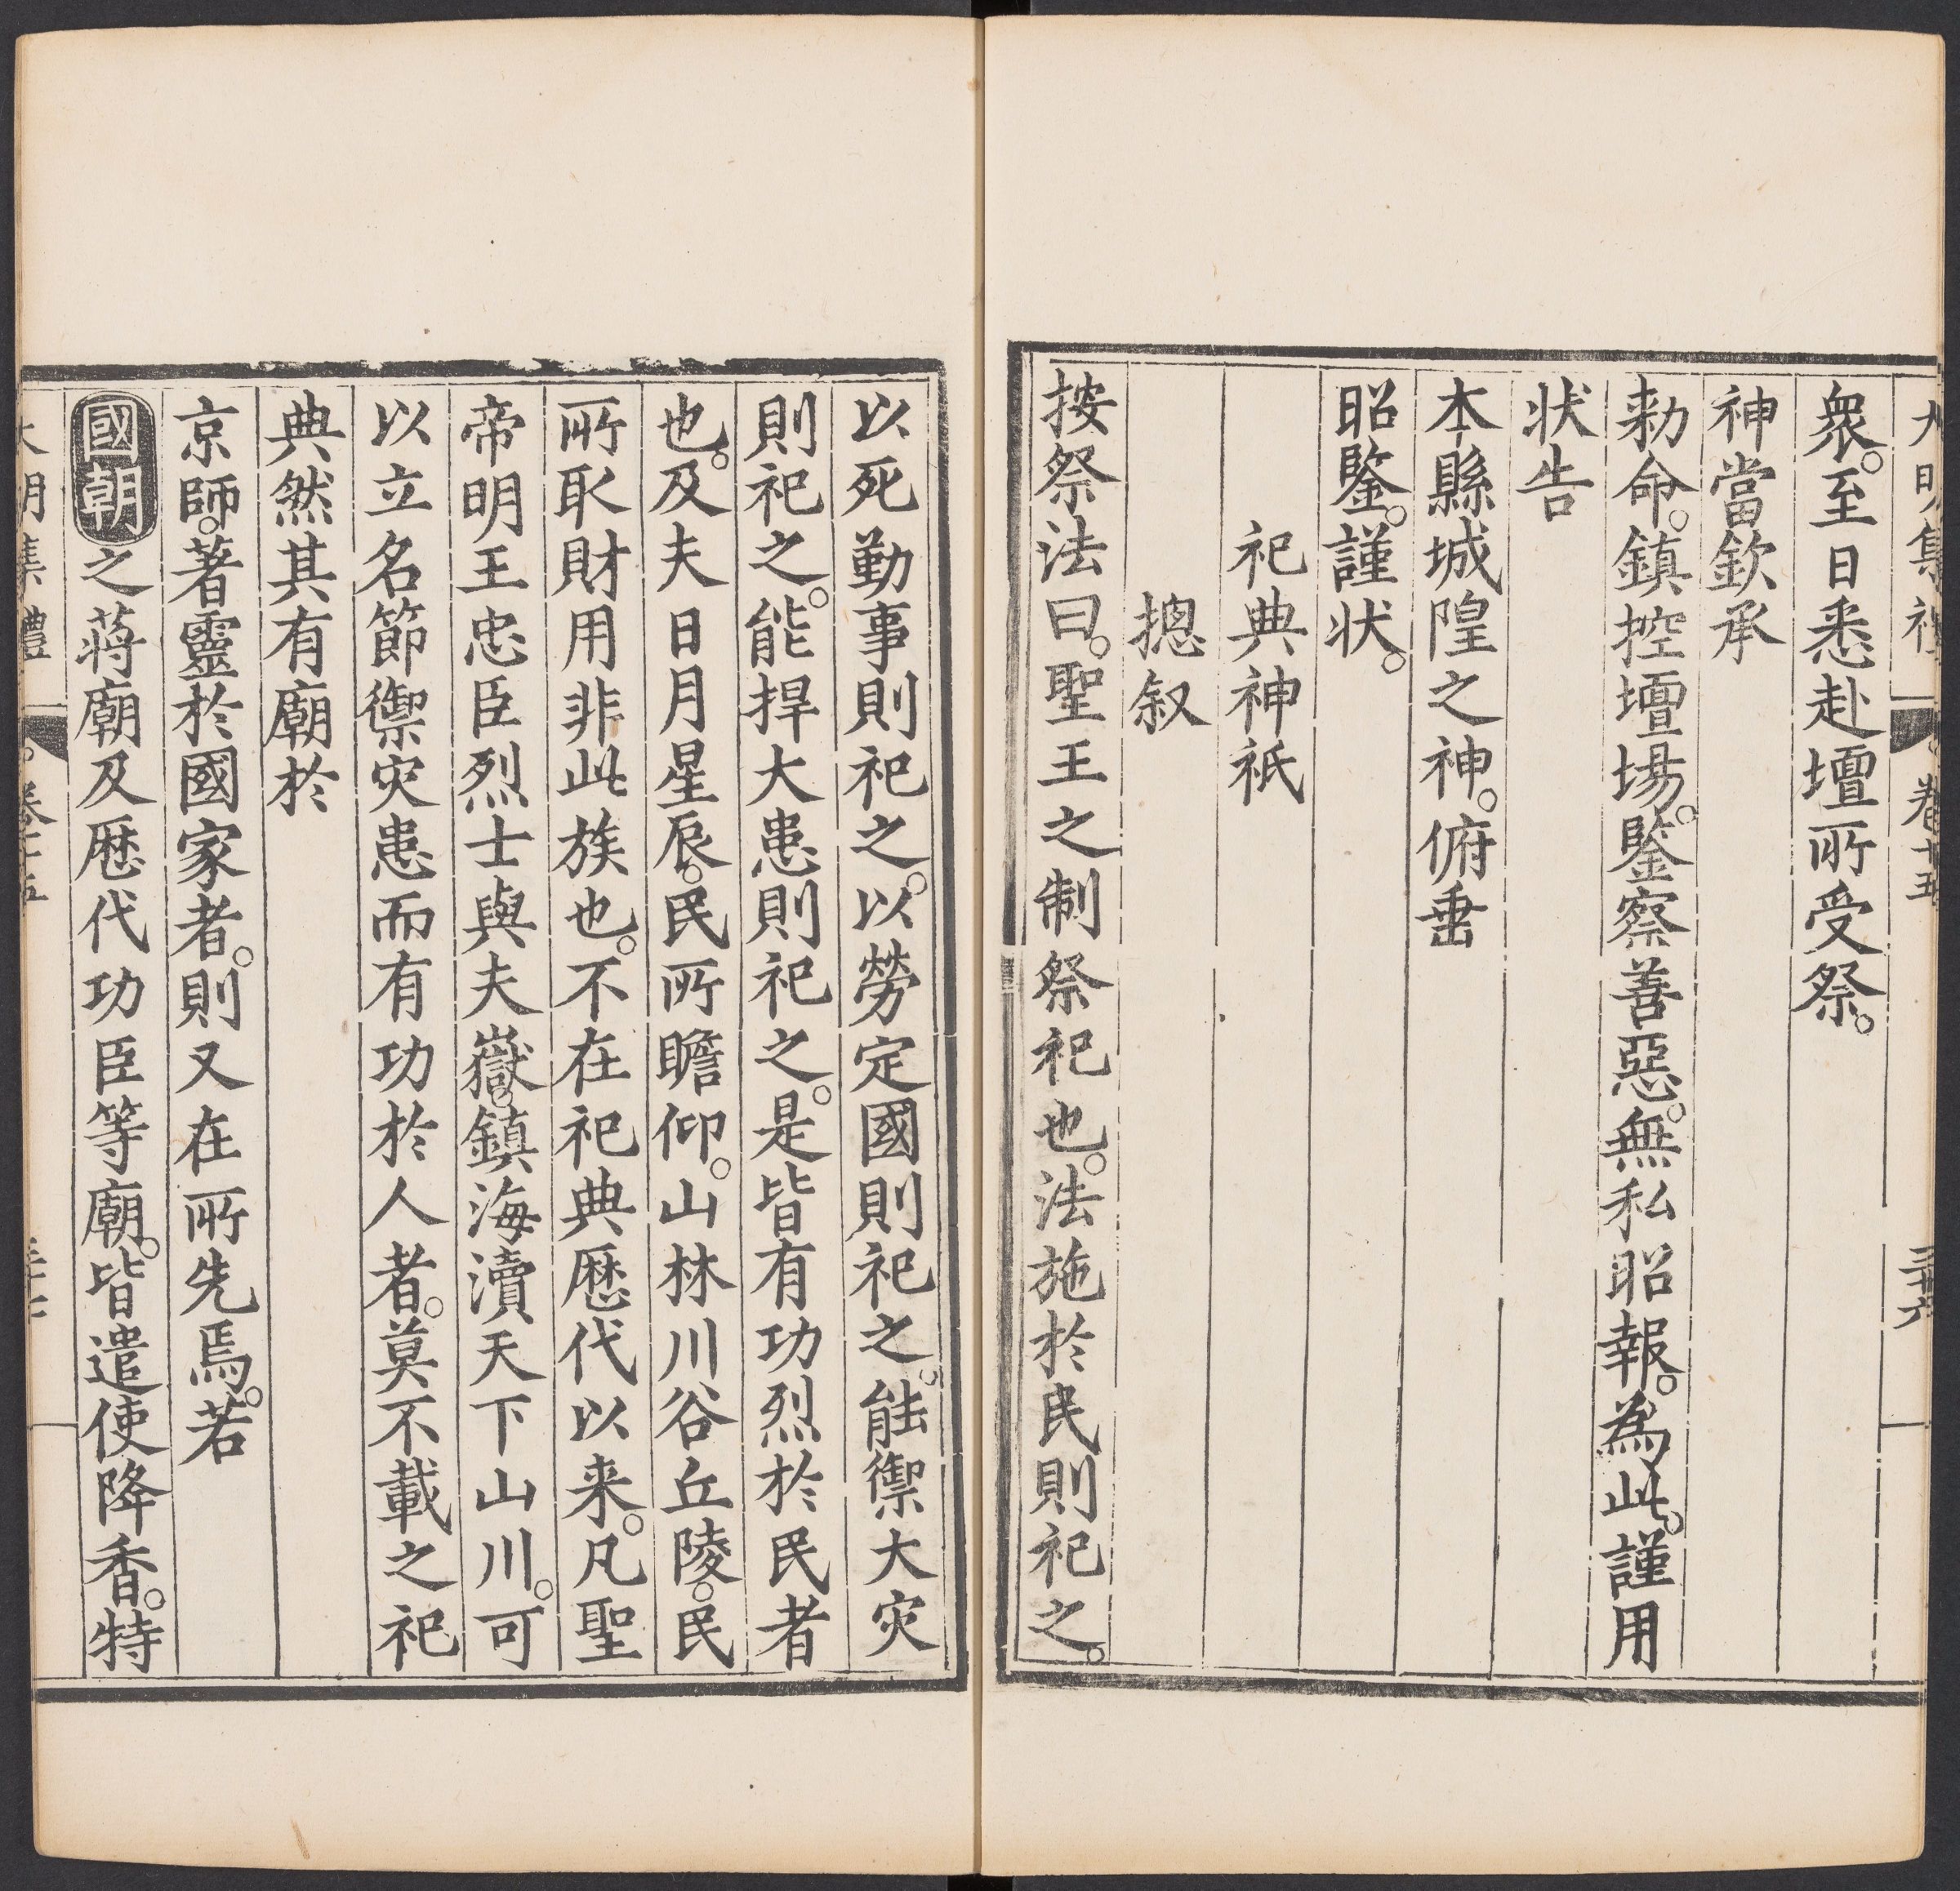 大明集禮 卷十五 三十六
衆。至日悉赴壇所受祭。
神當欽承
勑命。鎮控壇場。鍳察善惡。無私昭報。為此。謹用
状告
本縣城隍之神。俯垂
昭鍳。謹状。
祀典神祇
摠叙
按祭法曰。聖王之制祭祀也。法施於民則祀之。
以死勤事則祀之。以勞定國則祀之。能禦大灾
則祀之。能捍大患則祀之。是皆有功烈於民者
也。及夫日月星辰。民所瞻仰。山林川谷丘陵。民
所取財用非此族也。不在祀典歴代以来。凡聖
帝明王忠臣烈士與夫嶽。鎮海瀆天下山川。可
以立名節禦灾患而有功於人者。莫不載之祀
典然其有廟於
京師。著靈於國家者。則又在所先焉。若
國朝之蔣廟及歴代功臣等廟。皆遣使降香。特
大明集禮 卷十五